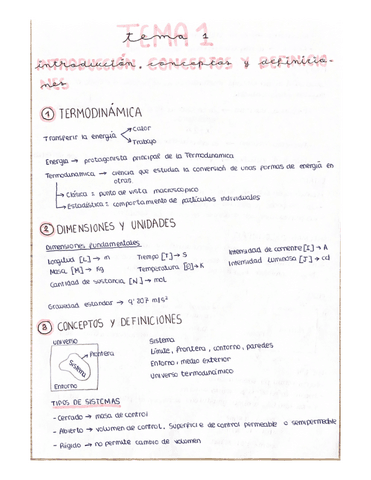 TEMA 1
tema 1
INTRODUCCIÓN, CONCEPTOS Y DEFINICIONES
introducción, conceptos y definiciones
1 TERMODINÁMICA
Transferir la energía → Calor
→ Trabajo
Energía → protagonista principal de la Termodinamica
Termodinamica → ciencia que estudia la conversión de unas formas de energía en
otras.
→ Clásica : punto de vista macroscópico
→ Estadística : comportamiento de partículas individuales
2 DIMENSIONES Y UNIDADES
Dimensiones fundamentales
Longitud [L] → m Tiempo [T] → s Intensidad de corriente [I] → A
Masa [M] → Kg Temperatura [θ] → K Intensidad luminosa [J] → cd
Cantidad de sustancia [N] → mol
Gravedad estandar → 9'807 m/s²
3 CONCEPTOS Y DEFINICIONES
Universo
Frontera
Sistema
Entorno
Sistema
Límite, frontera, contorno, paredes
Entorno, medio exterior
Universo termodinámico
TIPOS DE SISTEMAS
- Cerrado → masa de control
- Abierto → volumen de control. Superficie de control permeable o semipermeable
- Rígido → no permite cambio de volumen